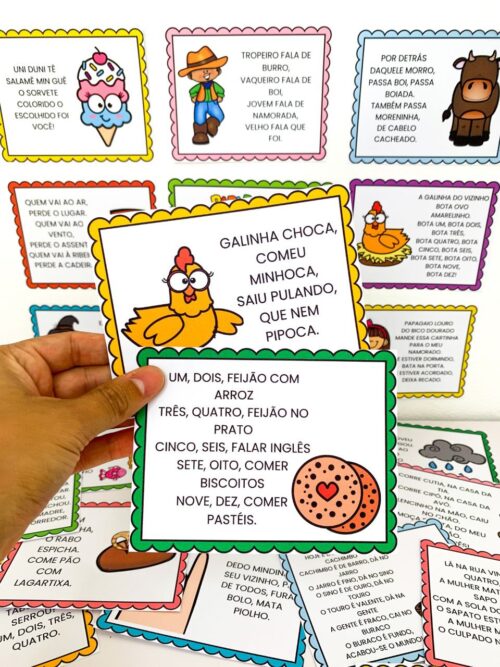 UNI DUNI TÊ
SALAMÊ MIN GUÊ
O SORVETE
COLORIDO O
ESCOLHIDO FOI
VOCÊ!
TROPEIRO FALA DE
BURRO,
VAQUEIRO FALA DE
BOI,
JOVEM FALA DE
NAMORADA,
VELHO FALA QUE
FOI.
POR DETRÁS
DAQUELE MORRO,
PASSA BOI, PASSA
BOIADA.
TAMBÉM PASSA
MORENINHA,
DE CABELO
CACHEADO.
QUEM VAI AO AR,
PERDE O LUGAR.
QUEM VAI AO
VENTO,
PERDE O ASSENT
QUEM VAI À RIBEI
PERDE A CADEIR
A GALINHA DO VIZINHO
BOTA OVO
AMARELINHO.
BOTA UM, BOTA DOIS,
BOTA TRÊS,
BOTA QUATRO, BOTA
CINCO, BOTA SEIS,
BOTA SETE, BOTA OITO,
BOTA NOVE,
BOTA DEZ!
GALINHA CHOCA,
COMEU
MINHOCA,
SAIU PULANDO,
QUE NEM
PIPOCA.
PAPAGAIO LOURO
DO BICO DOURADO
MANDE ESSA CARTINHA
PARA O MEU
NAMORADO.
E ESTIVER DORMINDO,
BATA NA PORTA.
E ESTIVER ACORDADO,
DEIXA RECADO.
UM, DOIS, FEIJÃO COM
ARROZ
TRÊS, QUATRO, FEIJÃO NO
PRATO
CINCO, SEIS, FALAR INGLÊS
SETE, OITO, COMER
BISCOITOS
NOVE, DEZ, COMER
PASTÉIS.
CORRE CUTIA, NA CASA DA
TIA.
CORRE CIPÓ, NA CASA DA
LENCINHO NA MÃO, CAIU
NO CHÃO.
MADRE,
ORREDOR.
O RABO
ESPICHA.
COME PÃO
COM
LAGARTIXA.
SERROU
UM, DOIS, TRÊS,
QUATRO.
DEDO MINDIN
SEU VIZINHO, P
DE TODOS, FURA
BOLO, MATA
PIOLHO.
CACHIMBO
CACHIMBO É DE BARRO, DÁ NO
JARRO
O JARRO É FINO, DÁ NO SINO
O SINO É DE OURO, DÁ NO
TOURO
O TOURO É VALENTE, DÁ NA
GENTE
A GENTE É FRACO, CAI NO
BURACO
O BURACO É FUNDO,
ACABOU-SE O MUNDO!
LÁ NA RUA VIN
A MULHER MAT
SAPO
COM A SOLA D
O SAPATO ESTR
A MULHER
O CULPADO N